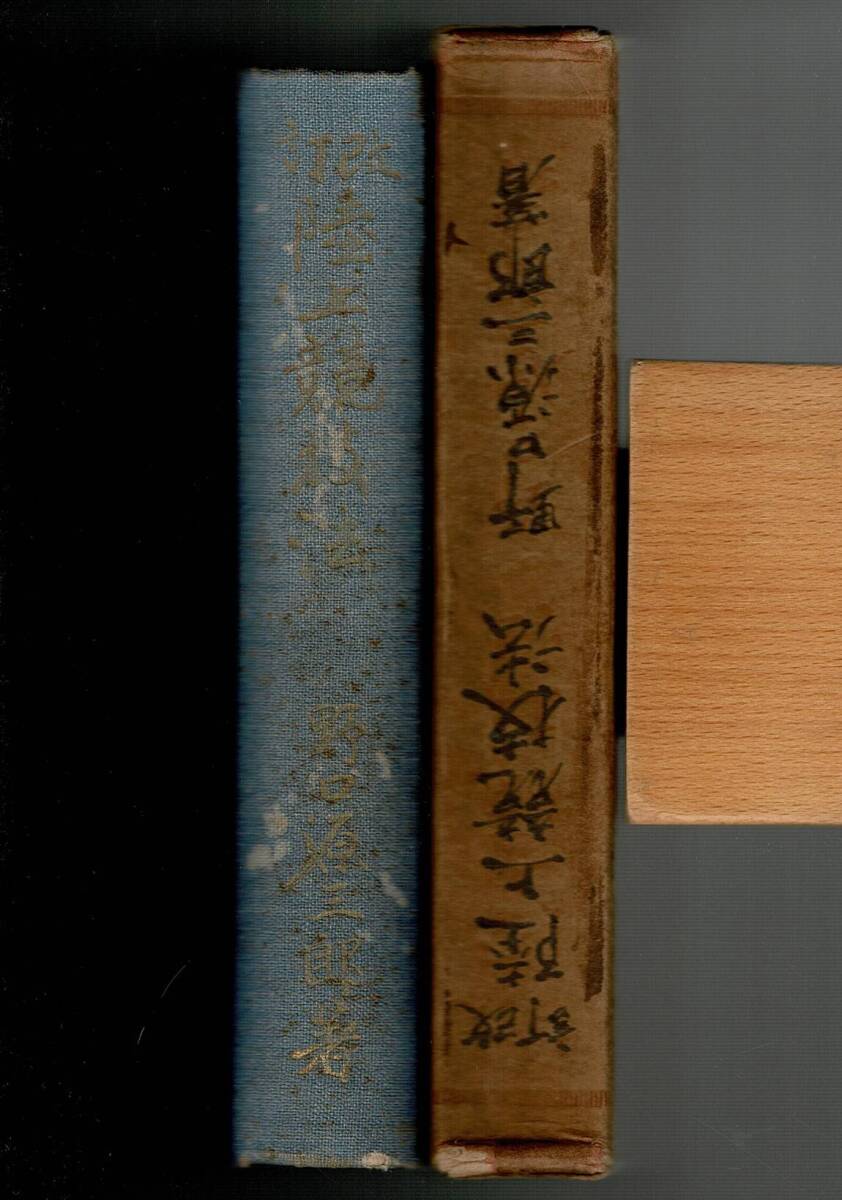 改訂
陸上競技法
野口源三郎著
改訂
陸上競技法
野口源三郎著